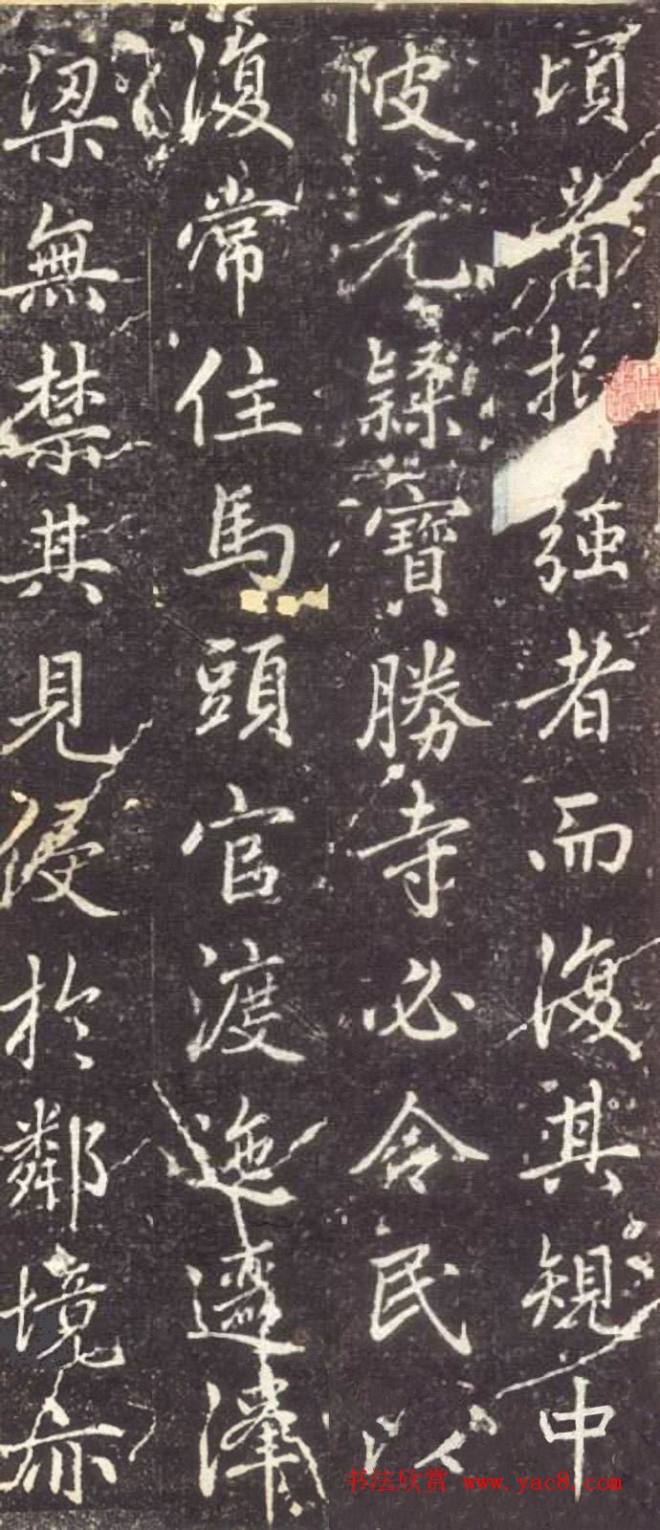 頃首强者而復其規中
陂元隸寶勝寺必令民以
復常住馬頭官渡迤邐澤
梁無禁其見侵於鄰境亦
书法欣赏 www.yac8.com